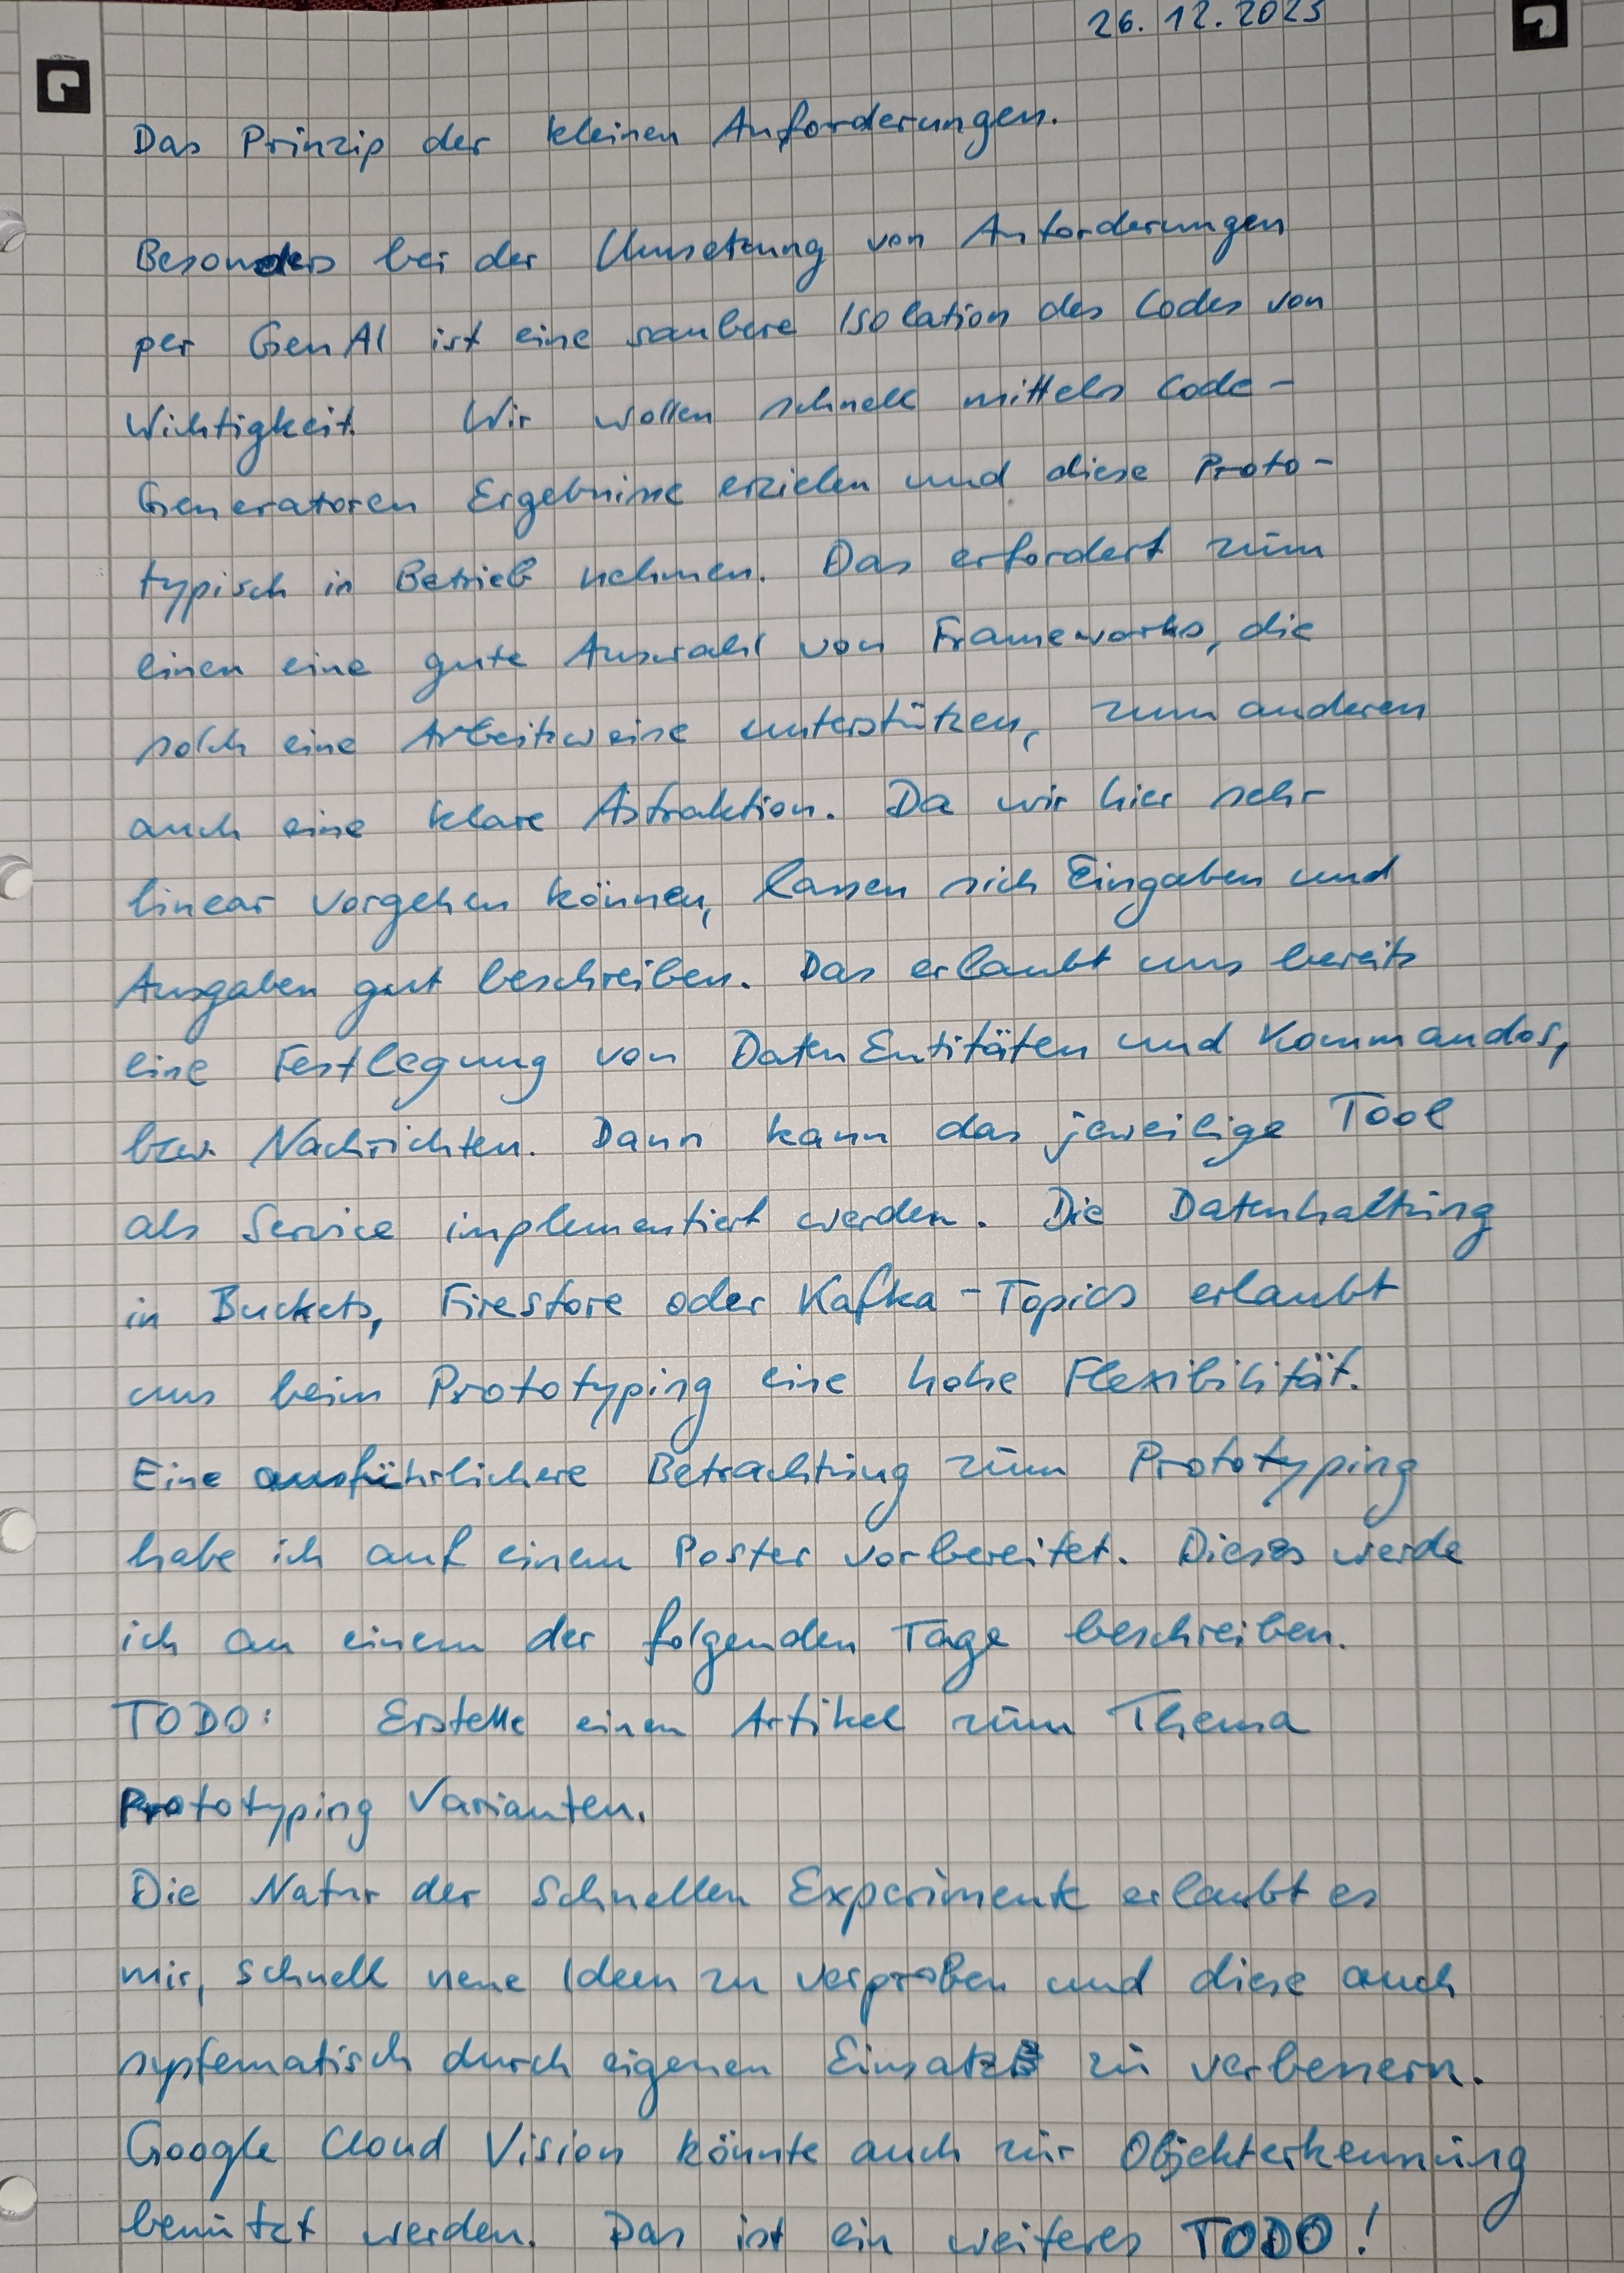 26.12.2023
Das Prinzip der kleinen Anforderungen.
Besonders bei der Umsetzung von Anforderungen
per GenAI ist eine saubere Isolation des Codes von
Wichtigkeit. Wir wollen schnell mittels Code-
Generatoren Ergebnisse erzielen und diese Proto-
typisch in Betrieb nehmen. Das erfordert zum
einen eine gute Auswahl von Frameworks, die
solch eine Arbeitsweise unterstützen, zum anderen
auch eine klare Abstraktion. Da wir hier sehr
linear vorgehen können, lassen sich Eingaben und
Ausgaben gut beschreiben. Das erlaubt uns bereits
eine Festlegung von Daten Entitäten und Kommandos,
bzw. Nachrichten. Dann kann das jeweilige Tool
als Service implementiert werden. Die Datenhaltung
in Buckets, Firestore oder Kafka-Topics erlaubt
uns beim Prototyping eine hohe Flexibilität.
Eine ausführlichere Betrachtung zum Prototyping
habe ich auf einem Poster vorbereitet. Dieses werde
ich an einem der folgenden Tage beschreiben.
TODO: Erstelle einen Artikel zum Thema
Prototyping Varianten.
Die Natur der schnellen Experimente erlaubt es
mir, schnell neue Ideen zu verproben und diese auch
systematisch durch eigenen Einsatz zu verbessern.
Google Cloud Vision könnte auch zur Objekterkennung
benutzt werden. Das ist ein weiteres TODO!